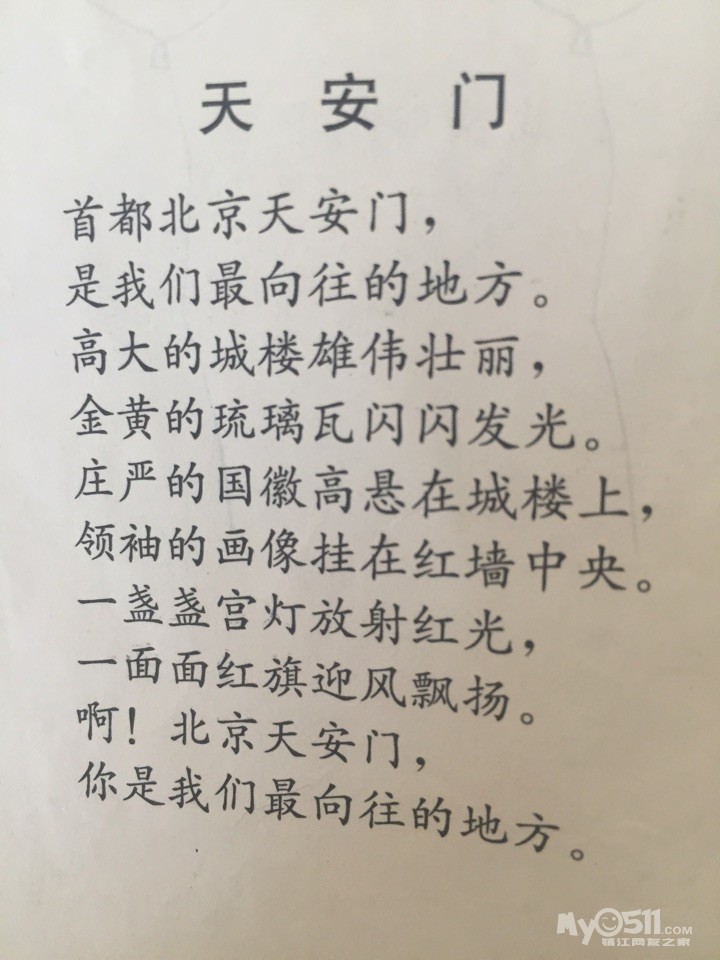 天安门
首都北京天安门，
是我们最向往的地方。
高大的城楼雄伟壮丽，
金黄的琉璃瓦闪闪发光。
庄严的国徽高悬在城楼上，
领袖的画像挂在红墙中央。
一盏盏宫灯放射红光，
一面面红旗迎风飘扬。
啊！北京天安门，
你是我们最向往的地方。
My0511.COM
镇江网友之家